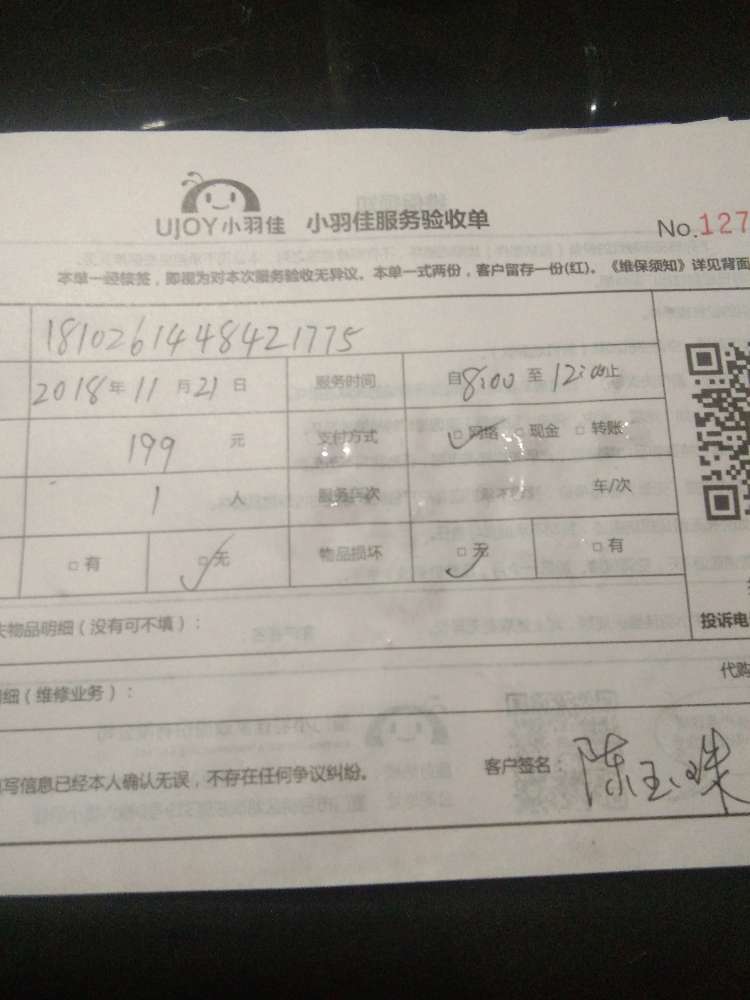 UJOY小羽佳 小羽佳服务验收单
No.127
本单一经核签，即视为对本次服务验收无异议。本单一式两份，客户留存一份(红)。《维保须知》详见背面
1810261448421775
2018年11月21日 服务时间 自8:00至12:00止
199 元 支付方式 □网络 □现金 □转账
1 人 服务车次 年/次
□有 □无 物品损坏 □无 □有
物品明细（没有可不填）：
投诉电
明细（维修业务）：
代购
写信息已经本人确认无误，不存在任何争议纠纷。 客户签名： 陈玉珠